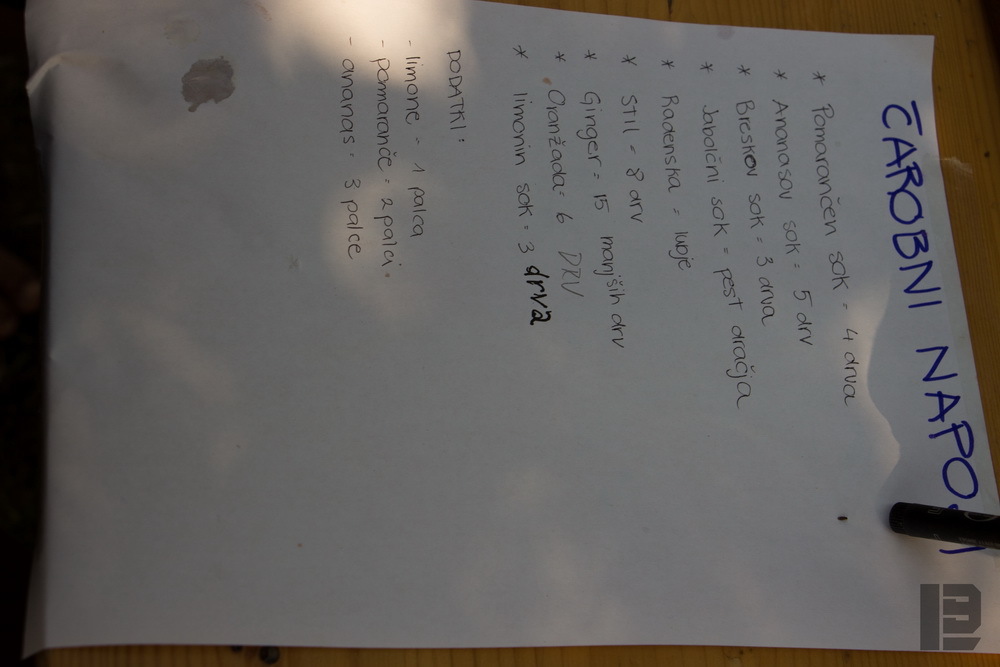 ČAROBNI NAPO
* Pomarančen sok = 4 drva
* Ananasov sok = 5 drv
* Breskov sok = 3 drva
* Jabolčni sok = pest dračja
* Radenska = lubje
* Stil = 8 drv
* Ginger = 15 manjših drv
* Oranžada = 6 DRV
* limonin sok = 3 drva
DODATKI:
- limone - 1 palca
- pomaranče = 2 palci
- ananas = 3 palce